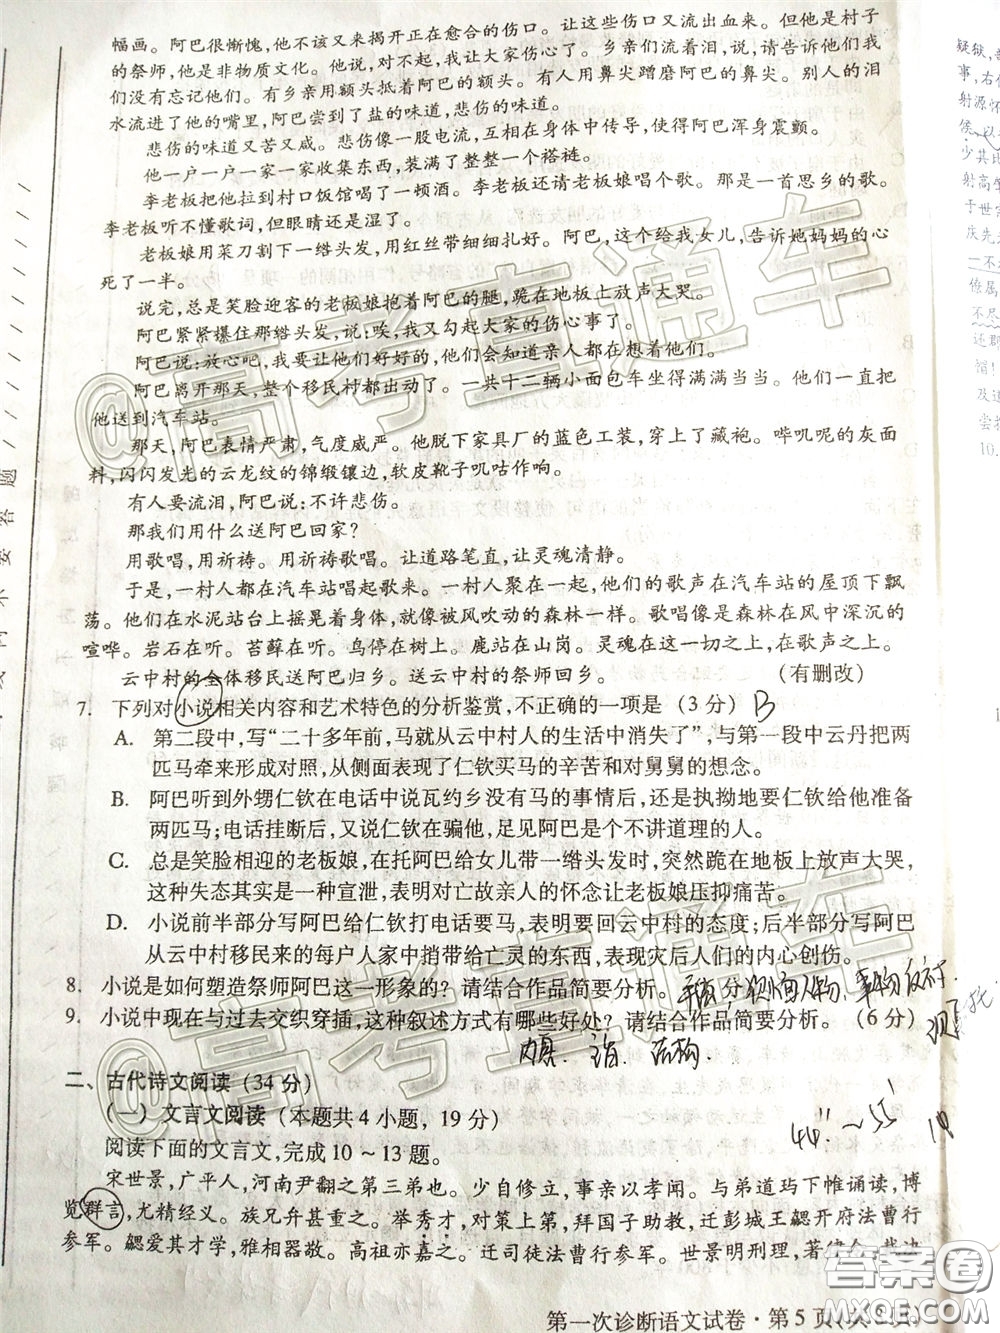 幅画。阿巴很惭愧,他不该又来揭开正在愈合的伤口。让这些伤口又流出血来。但他是村子
的祭师,他是非物质文化。他说,对不起,我让大家伤心了。乡亲们流着泪,说,请告诉他们我
们没有忘记他们。有乡亲用额头抵着阿巴的额头。有人用鼻尖蹭磨阿巴的鼻尖。别人的泪
水流进了他的嘴里,阿巴尝到了盐的味道,悲伤的味道。
悲伤的味道又苦又咸。悲伤像一股电流,互相在身体中传导,使得阿巴浑身震颤。
他一户一户一家一家收集东西,装满了整整一个褡裢。
李老板把他拉到村口饭馆喝了一顿酒。李老板还请老板娘唱个歌。那是一首思乡的歌。
李老板听不懂歌词,但眼睛还是湿了。
老板娘用菜刀割下一绺头发,用红丝带细细扎好。阿巴,这个给我女儿,告诉她妈妈的心
死了一半。
说完,总是笑脸迎客的老板娘抱着阿巴的腿,跪在地板上放声大哭。
阿巴紧紧攥住那绺头发,说:唉,我又勾起大家的伤心事了。
阿巴说:放心吧,我要让他们好好的,他们会知道亲人都在想着他们。
阿巴离开那天,整个移民村都出动了。一共十二辆小面包车坐得满满当当。他们一直把
他送到汽车站。
那天,阿巴表情严肃,气度威严。他脱下家具厂的蓝色工装,穿上了藏袍。哔叽呢的灰面
料,闪闪发光的云龙纹的锦缎镶边,软皮靴子叽咕作响。
有人要流泪,阿巴说:不许悲伤。
那我们用什么送阿巴回家?
用歌唱,用祈祷。用祈祷歌唱。让道路笔直,让灵魂清静。
于是,一村人都在汽车站唱起歌来。一村人聚在一起,他们的歌声在汽车站的屋顶下飘
荡。他们在水泥站台上摇晃着身体,就像被风吹动的森林一样。歌唱像是森林在风中深沉的
喧哗。岩石在听。苔藓在听。鸟停在树上。鹿站在山岗。灵魂在这一切之上,在歌声之上。
云中村的全体移民送阿巴归乡。送云中村的祭师回乡。 (有删改)
7. 下列对小说相关内容和艺术特色的分析鉴赏,不正确的一项是(3分) B
A. 第二段中,写“二十多年前,马就从云中村人的生活中消失了”,与第一段中云丹把两
匹马牵来形成对照,从侧面表现了仁钦买马的辛苦和对舅舅的想念。
B. 阿巴听到外甥仁钦在电话中说瓦约乡没有马的事情后,还是执拗地要仁钦给他准备
两匹马;电话挂断后,又说仁钦在骗他,足见阿巴是个不讲道理的人。
C. 总是笑脸相迎的老板娘,在托阿巴给女儿带一绺头发时,突然跪在地板上放声大哭,
这种失态其实是一种宣泄,表明对亡故亲人的怀念让老板娘压抑痛苦。
D. 小说前半部分写阿巴给仁钦打电话要马,表明要回云中村的态度;后半部分写阿巴
从云中村移民来的每户人家中捎带给亡灵的东西,表现灾后人们的内心创伤。
8. 小说是如何塑造祭师阿巴这一形象的?请结合作品简要分析。
9. 小说中现在与过去交织穿插,这种叙述方式有哪些好处?请结合作品简要分析。(6分)
二、古代诗文阅读(34分)
(一)文言文阅读(本题共4小题,19分)
阅读下面的文言文,完成10~13题。
宋世景,广平人,河南尹翻之第三弟也。少自修立,事亲以孝闻。与弟道玙下帷诵读,博
览群言,尤精经义。族兄弁甚重之。举秀才,对策上第,拜国子助教,迁彭城王勰开府法曹行
参军。勰爱其才学,雅相器敬。高祖亦嘉之。迁司徒法曹行参军。世景明刑理,著律令,裁决
第一次诊断语文试卷·第5页
@高考直通车
答案圈
MXQE.COM